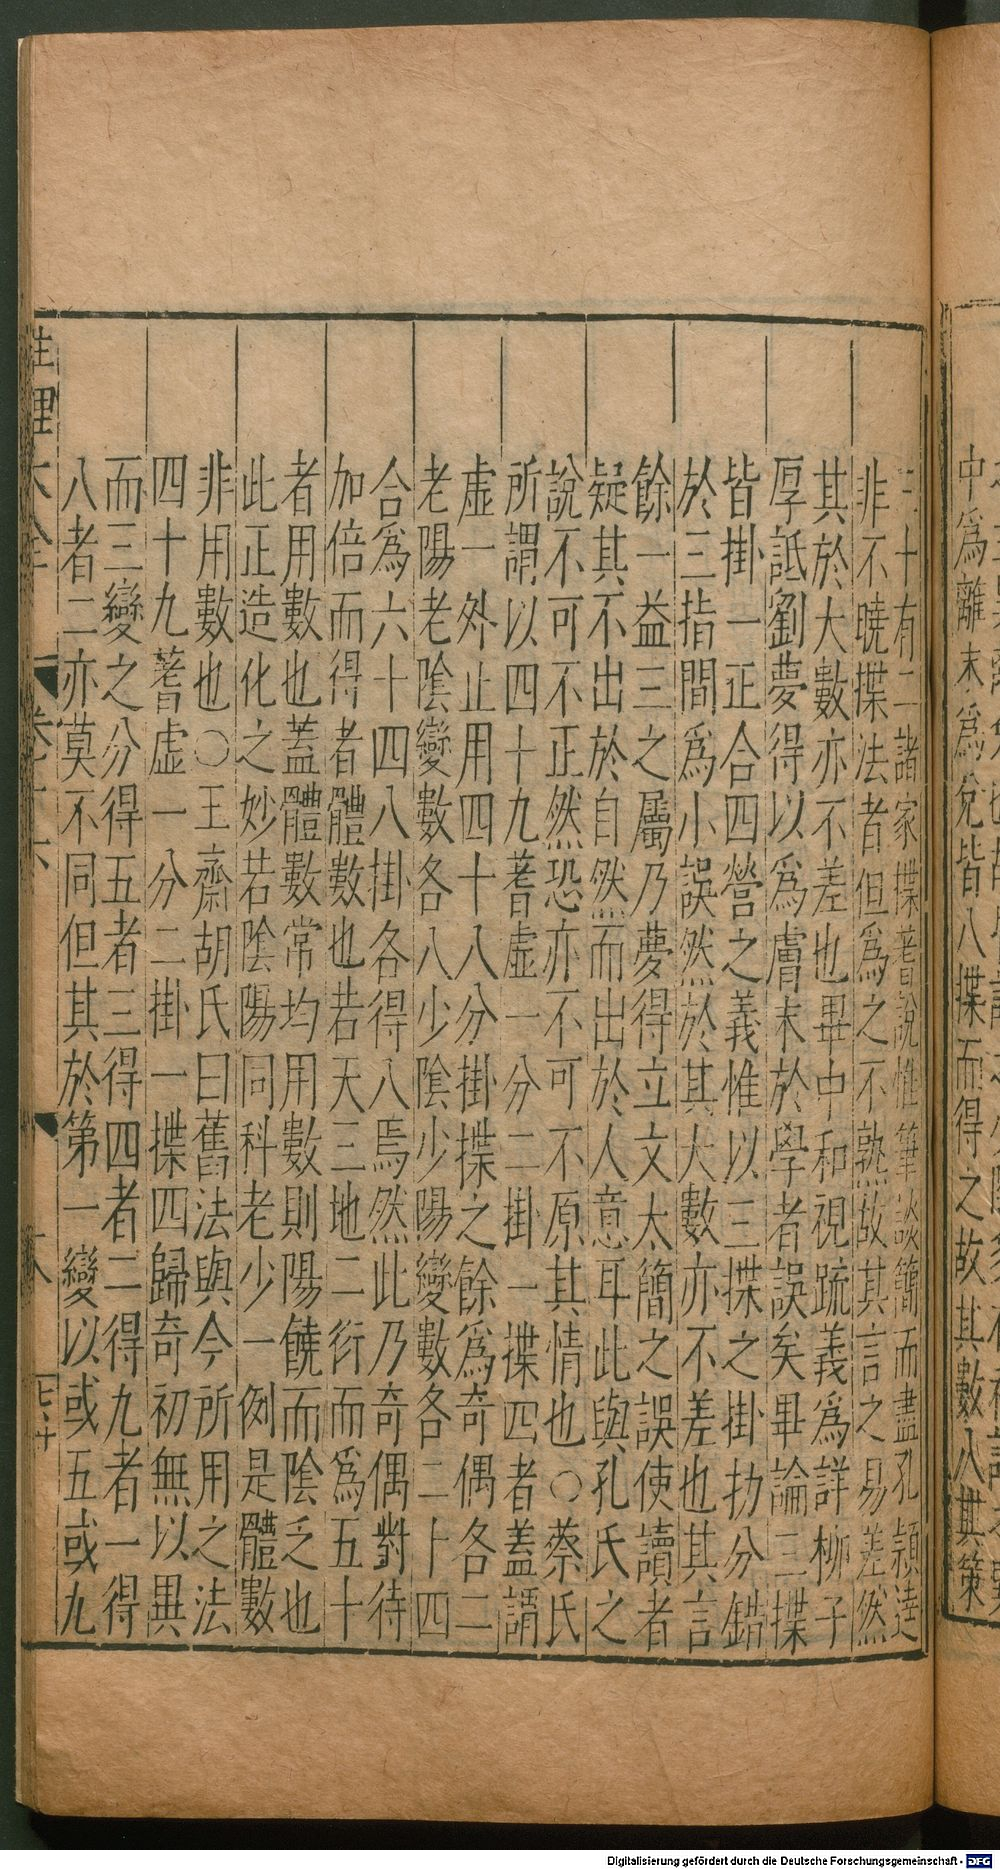 三十有二諸家揲蓍説惟筆談簡而盡孔頴逹
非不曉揲法者但為之不熟故其言之易差然
其於大數亦不差也畢中和視疏義為詳柳子
厚詆劉夢得以為膚末於學者誤矣畢論三揲
皆掛一正合四營之義惟以三揲之掛扐分錯
於三指間為小誤然於其大數亦不差也其言
餘一益三之屬乃夢得立文太簡之誤使讀者
疑其不出於自然而出於人意耳此與孔氏之
説不可不正然恐亦不可不原其情也○蔡氏
所謂以四十九蓍虛一分二掛一揲四者蓋謂
虛一外止用四十八分掛揲之餘為奇偶各二
老陽老陰變數各八少陰少陽變數各二十四
合為六十四八掛各得八焉然此乃奇偶對待
加倍而得者體數也若天三地二衍而為五十
者用數也蓋體數常均用數則陽饒而陰乏也
此正造化之妙若陰陽同科老少一例是體數
非用數也○玉齋胡氏曰舊法與今所用之法
四十九蓍虛一分二掛一揲四歸奇初無以異
而三變之分得五者三得四者二得九者一得
八者二亦莫不同但其於第一變以或五或九
性理大全
卷十六
七十
中為離末為兌皆八揲而得之故其數八其策
Digitalisierung gefördert durch die Deutsche Forschungsgemeinschaft - DFG